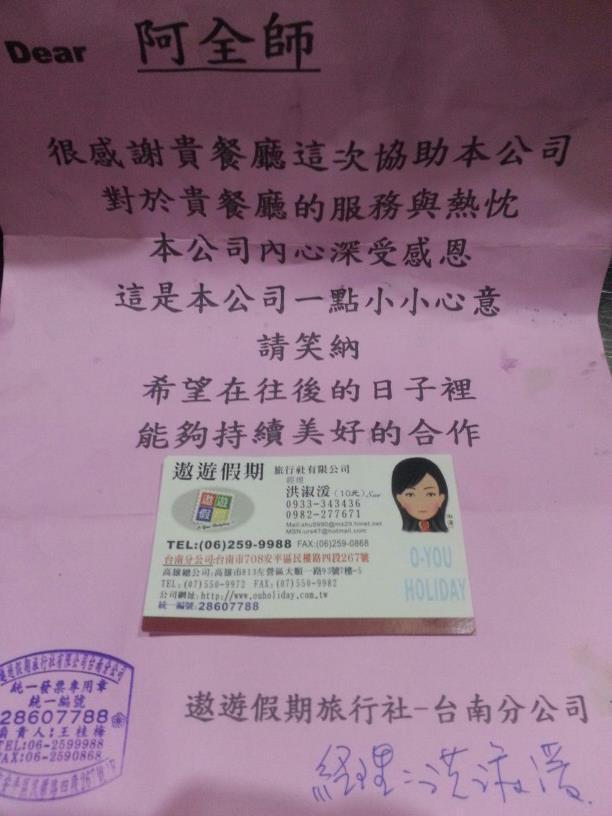 Dear 阿全師
很感謝貴餐廳這次協助本公司
對於貴餐廳的服務與熱忱
本公司內心深受感恩
這是本公司一點小小心意
請笑納
希望在往後的日子裡
能夠持續美好的合作
遨遊假期 旅行社有限公司
經理
洪淑湲 (10元)
0933-343436
0982-277671
Mail:shu9990@ms29.hinet.net
MSN:urs47@hotmail.com
遨遊假期
TEL:(06)259-9988 FAX:(06)259-0868
台南分公司:台南市708安平區民權路四段267號
高雄總公司:高雄市813左營區大順一路93號7樓-5
TEL:(07)550-9972 FAX:(07)550-9982
公司網址:http://www.ouholiday.com.tw
統一編號:28607788
O-YOU
HOLIDAY
遨遊假期旅行社有限公司台南分公司
統一發票專用章
統一編號
28607788
負責人:王桂梅
TEL:06-2599988
FAX:06-2590868
遨遊假期旅行社-台南分公司
經理:洪淑湲